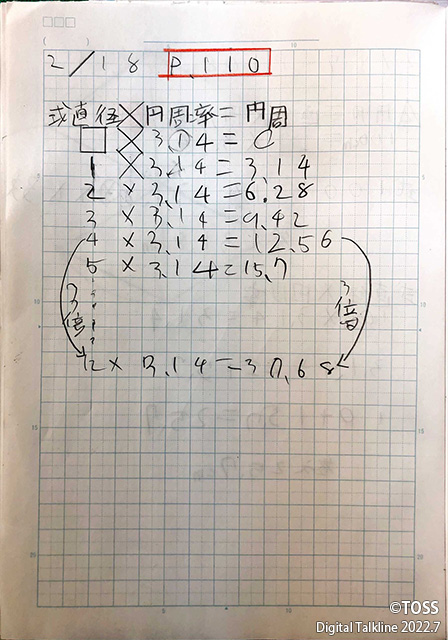 2/18 P.110
式直径×円周率=円周
□×3.14=○
1×3.14=3.14
2×3.14=6.28
3×3.14=9.42
4×3.14=12.56
5×3.14=15.7
3倍
3倍
12×3.14=37.68
©TOSS
Digital Talkline 2022.7